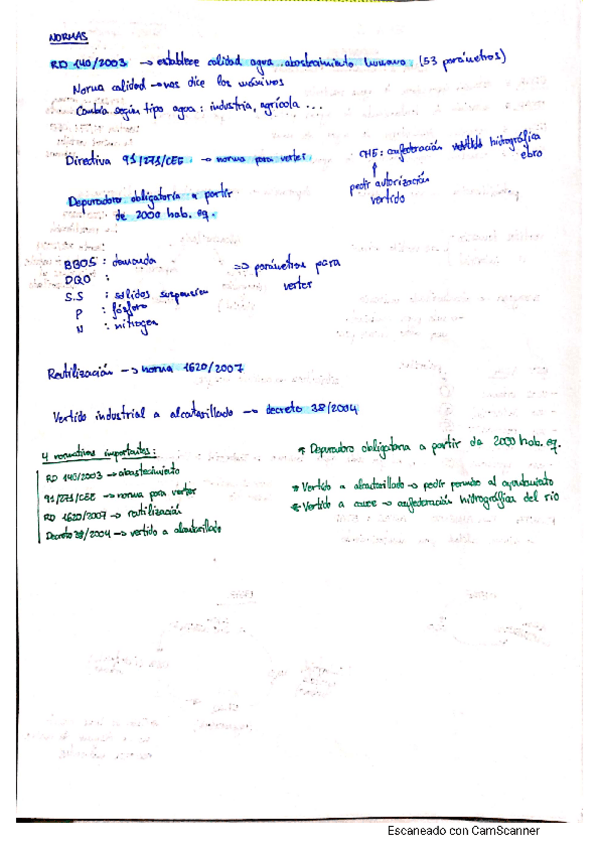 NORMAS
RD 140/2003 → establece calidad agua abastecimiento humano. (53 parámetros)
Norma calidad → nos dice los máximos
Cambia según tipo agua: industria, agrícola ...
Directiva 91/271/CEE. → norma para verter.
CHE: confederación hidrográfica
ebro
↑
pedir autorización
vertido
Depuradora obligatoria a partir
de 2000 hab. eq.
BBO5 : demanda
DQO :
S.S : sólidos suspension
P : fósforo
N : nitrogen
⇒ parámetros para
verter
Reutilización → norma 1620/2007
Vertido industrial a alcantarillado → decreto 38/2004
4 normativas importantes:
RD 140/2003 → abastecimiento
91/271/CEE → norma para verter
RD 1620/2007 → reutilización
Decreto 38/2004 → vertido a alcantarillado
* Depuradora obligatoria a partir de 2000 hab. eq.
* Vertido a alcantarillado → pedir permiso al ayuntamiento
* Vertido a cauce → confederación hidrográfica del rio
Escaneado con CamScanner